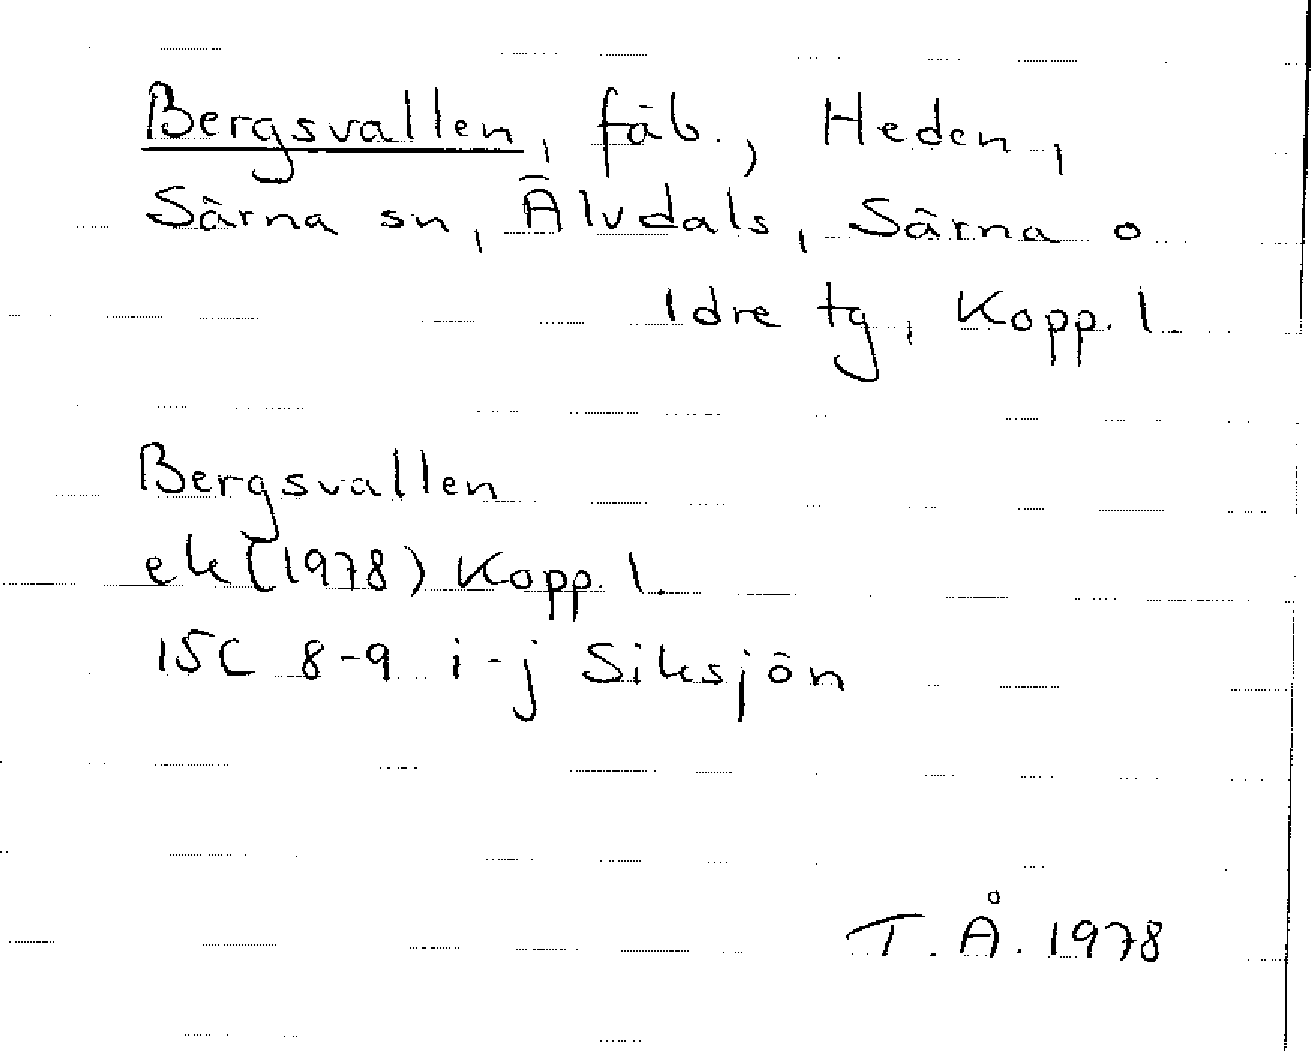 Bergsvallen, fäb., Heden,
Särna sn, Älvdals, Särna o
Idre tg, Kopp. l.
Bergsvallen
ek (1978) Kopp. l.
15C 8-9 i-j Siksjön
T. Å. 1978